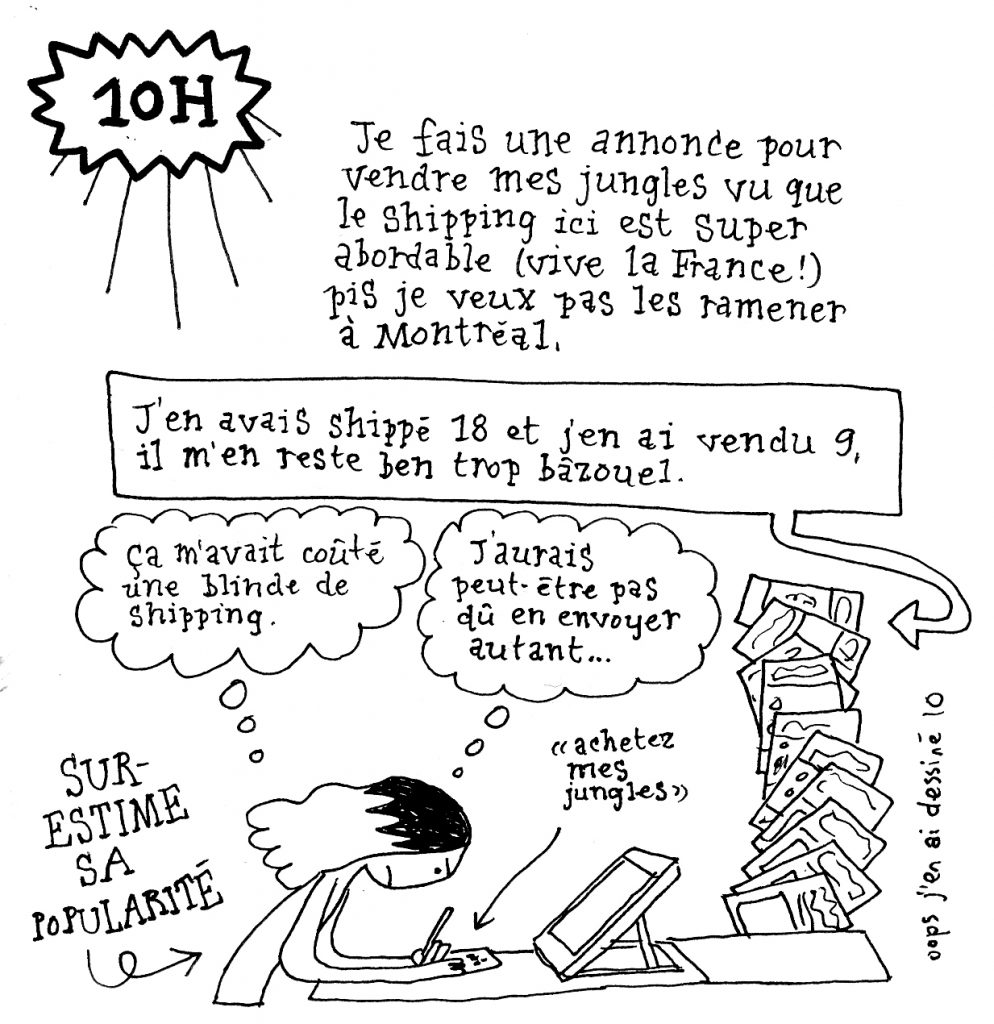 10H
Je fais une annonce pour
vendre mes jungles vu que
le shipping ici est super
abordable (vive la France!)
pis je veux pas les ramener
à Montréal.
J'en avais shippé 18 et j'en ai vendu 9,
il m'en reste ben trop bâzouel.
Ça m'avait coûté
une blinde de
shipping.
J'aurais
peut-être pas
dû en envoyer
autant...
«achetez
mes
jungles»
SUR-
ESTIME
SA
POPULARITÉ
oops j'en ai dessiné 10